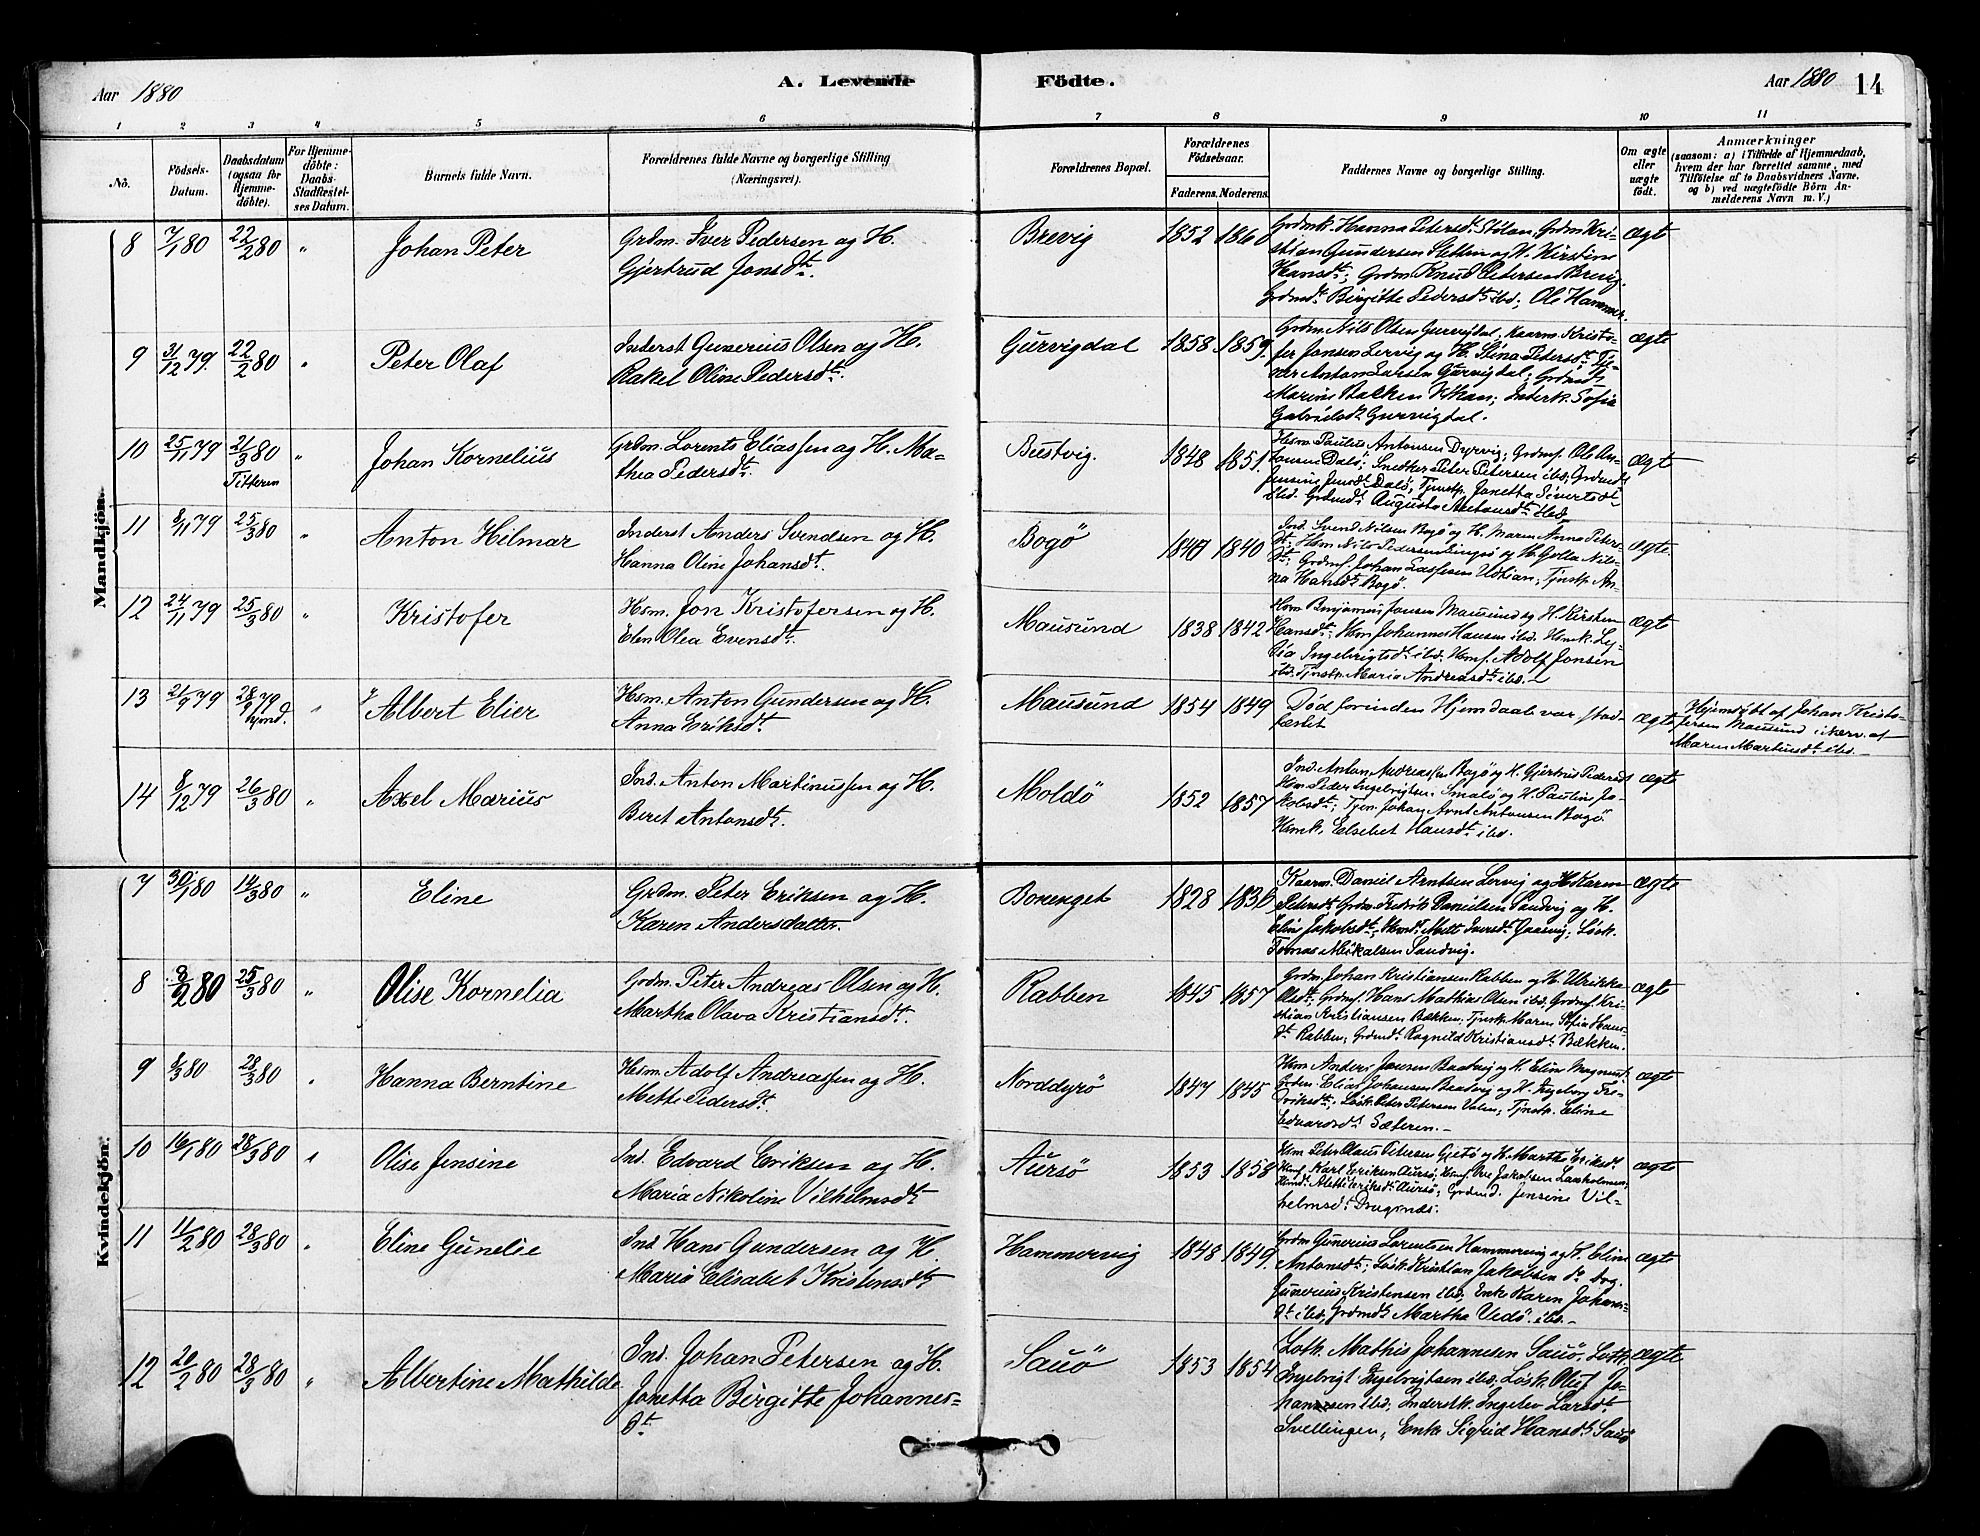 Aar 1880
A. Levende
Födte.
Aar 1880
14
1 2 3 4 5 6 7 8 9 10 11
No.
Födsels-Datum.
Daabsdatum (ogsaa for Hjemmedöbte).
For Hjemmedöbte: Daabs-Stadfæstelses Datum.
Barnets fulde Navn.
Forældrenes fulde Navne og borgerlige Stilling (Næringsvei).
Forældrenes Bopæl.
Forældrenes Födselsaar.
Faderens. Moderens.
Faddernes Navne og borgerlige Stilling.
Om ægte eller uægte födt.
Anmærkninger
(saasom: a) i Tilfælde af Hjemmedaab, hvem der har forrettet samme, med Tilföielse af to Daabsvidners Navne, og b) ved uægtefödte Börn Anmelderens Navn m. V.)
Mandkjön.
8 7/1 80 22/2 80 " Johan Peter
Grdm. Iver Pedersen og H.
Gjertrud Jonsdt.
Brevig 1852 1860
Grdmk. Hanna Petersdt. Stölan, Grdm Kri-
stian Gundersen Slettin og H. Kirstine
Hansdt; Grdm. Knud Petersen Brevig.
Grdmdt. Birgitte Pedersdt. ibd; Ole Hammer.
Ægt
9 31/12 79. 22/2 80 " Peter Olaf
Inderst Gunerius Olsen og H.
Rakel Oline Pedersdt.
Gurvigdal 1858 1859.
Grdm Nils Olsen Gurvigdal, Kaarm. Kristo-
fer Jonsen Lervig og H. Stina Pedersdt.
Gabrielsdt. Gurvigdal.
ægte
10 25/11 79 21/3 80 Titteren " Johan Kornelius
Grdm. Lorents Eliassen og H. Ma-
thea Pedersdt.
Bustvig. 1848 1851.
Hsm. Paulus Antonsen Dyrvig; Grdmf. Ole An-
tonsen Dalö; Snedker Peter Petersen ibd; Grdmdt
Jensine Jensdt Dalö; Tjnstp. Janetta Sivertsdt
ibd. Grdmdt. Augusta Antonsdt. ibd.
Ægte
11 8/11 79 25/3 80 " Anton Hilmar
Inderst Anders Svendsen og H.
Hanna Oline Johansdt.
Bogö 1847 1840
Ind. Svend Nilsen Bogö og H. Maren Anna Peters-
dt; Hsm Nils Pedersen og H. Golla Nils-
dt; Grdmf. Johan Lassesen Udtian; Tjnstp. An-
na Hansdt. Bogö.
ægte.
12 24/11 79 25/3 80 " Kristofer
Hsm. Jon Kristofersen og H.
Elen Olea Evensdt.
Mausund 1838 1842
Hsm Benjamin Jonsen Mausund og H. Kirsten
Hansdt; Hsm Johannes Hansen ibd. Hsmk. Ly-
dia Ingebrigtsdt. ibd. Hsmf. Adolf Jonsen
ibd. Tjnstp. Maria Andreasdt. ibd.
ægte
13 21/9 79 28/9 79 hjemd. " † Albert Elier
Hsm. Anton Gundersen og H.
Anna Eriksdt.
Mausund 1854 1849
Död forinden Hjemdaab var stad-
fæstet
ægte
Hjemdöbt af Johan Kristo-
fersen Mausund i nærv. af
Maren Martinsdt. ibd.
14 8/12 79 26/3 80 " Axel Marius
Ind. Anton Martinussen og H.
Beret Antonsdt.
Moldö 1852 1857
Ind. Anton Andreassen Bogö og H. Gjertrud Pedersdt
Hsm. Peder Ingebrigtsen Smalö og H. Pauline Ja-
kobsdt; Tjen. Johan Arnt Antonsen Bogö.
Hsmk. Elsebet Hansdt. ibd.
ægte
Kvindekjön.
7 30/1 80 14/3 80 " Eline
Grdm. Peter Eriksen og H.
Karen Andersdatter.
Borenget 1828 1836
Kaarm. Daniel Arntsen Lervig og H Karen
Petersdt. Grdm. Fredrik Danielsen Sandvig og H.
Elen Jakobsdt; Hsmdt. Mett Iversdt; Lösk.
Tomas Mikalsen Sandvig.
Ægte
8 8/2 80 25/3 80 " Olise Kornelia
Grdm. Peter Andreas Olsen og H.
Martha Olava Kristiansdt.
Rabben 1845 1857
Grdm. Johan Kristiansen Rabben og H. Ulrikke
Olsdt; Grdmf. Hans Mathias Olsen ibd. Grdmf. Kri-
stian Kristiansen Bækken. Tjnstp. Maren Sofia Hans-
dt. Rabben; Grdmdt. Ragnild Kristiansdt. Bækken.
ægte
9 8/3 80 28/3 80 " Hanna Berntine
Hsm. Adolf Andreassen og H.
Mette Pedersdt.
Norddyrö 1847 1845
Hsm Anders Jansen Baadvig og H. Eline Magnusdt
Grdm. Elias Johansen Baadvig og H. Ingeborg Fre-
driksdt; Lösk. Peter Petersen Valen; Tjnstp. Eline
Edvardsdt. Sæteren.
ægte
10 16/1 80 28/3 80 " Olise Jensine
Ind. Edvard Eriksen og H.
Maria Nikoline Vilhelmsdt.
Aursö 1853 1858
Hsm Peter Olaus Petersen Gjetö og H. Marthe Eriksdt.
Hsmf. Karl Eriksen Aursö; Hsmf. Ove Jakobsen
Hsmdt. Mette Eriksdt. Aursö; Grdmd. Jensine Vil-
helmsdt. Dragsnæs.
ægte
11 11/2 80 28/3 80 " Eline Gunelie
Ind Hans Gundersen og H
Maria Elisabet Kristensdt.
Hammervig 1848 1849.
Grdm Gunerius Lorentsen Hammervig og H. Elen
Antonsdt; Lösk. Kristian Jakobsen do. og
Gunerius Kristensen ibd; Enke Karen Johans-
dt ibd, Grdmdt. Martha Vedö. ibd.
ægte
12 20/2 80 28/3 80 " Albertine Mathilde
Ind. Johan Petersen og H.
Janetta Birgitte Johannes-
dt.
Sauö 1853 1854
Loth. Mathis Johannesen Sauö. Loth.
Ingebrigt Ingebrigtsen ibd. Lösk. Oluf Jo-
hannesen ibd; Inderstk. Ingelev Larsdt.
Svellingen, Enke Sigrid Hansdt. Sauö
ægte